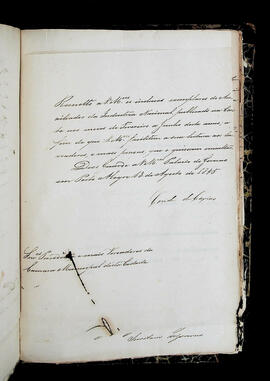 Remetto a V.Mces os inclusos exemplares do Au-
xiliador da Industria Nacional, publicado na Cor-
te nos mezes de Fevereiro a Junho deste anno, a-
fim de que V.Mces facilitem a sua leitura aos La-
vradores, e mais pessoas, que o quizerem consultar.
Deos Guarde a V.Mces Palacio do Governo
em Porto Alegre 13 de Agosto de 1845
Conde de Caxias
Snres Presidente e mais Vereadores da
Camara Municipal desta Cidade